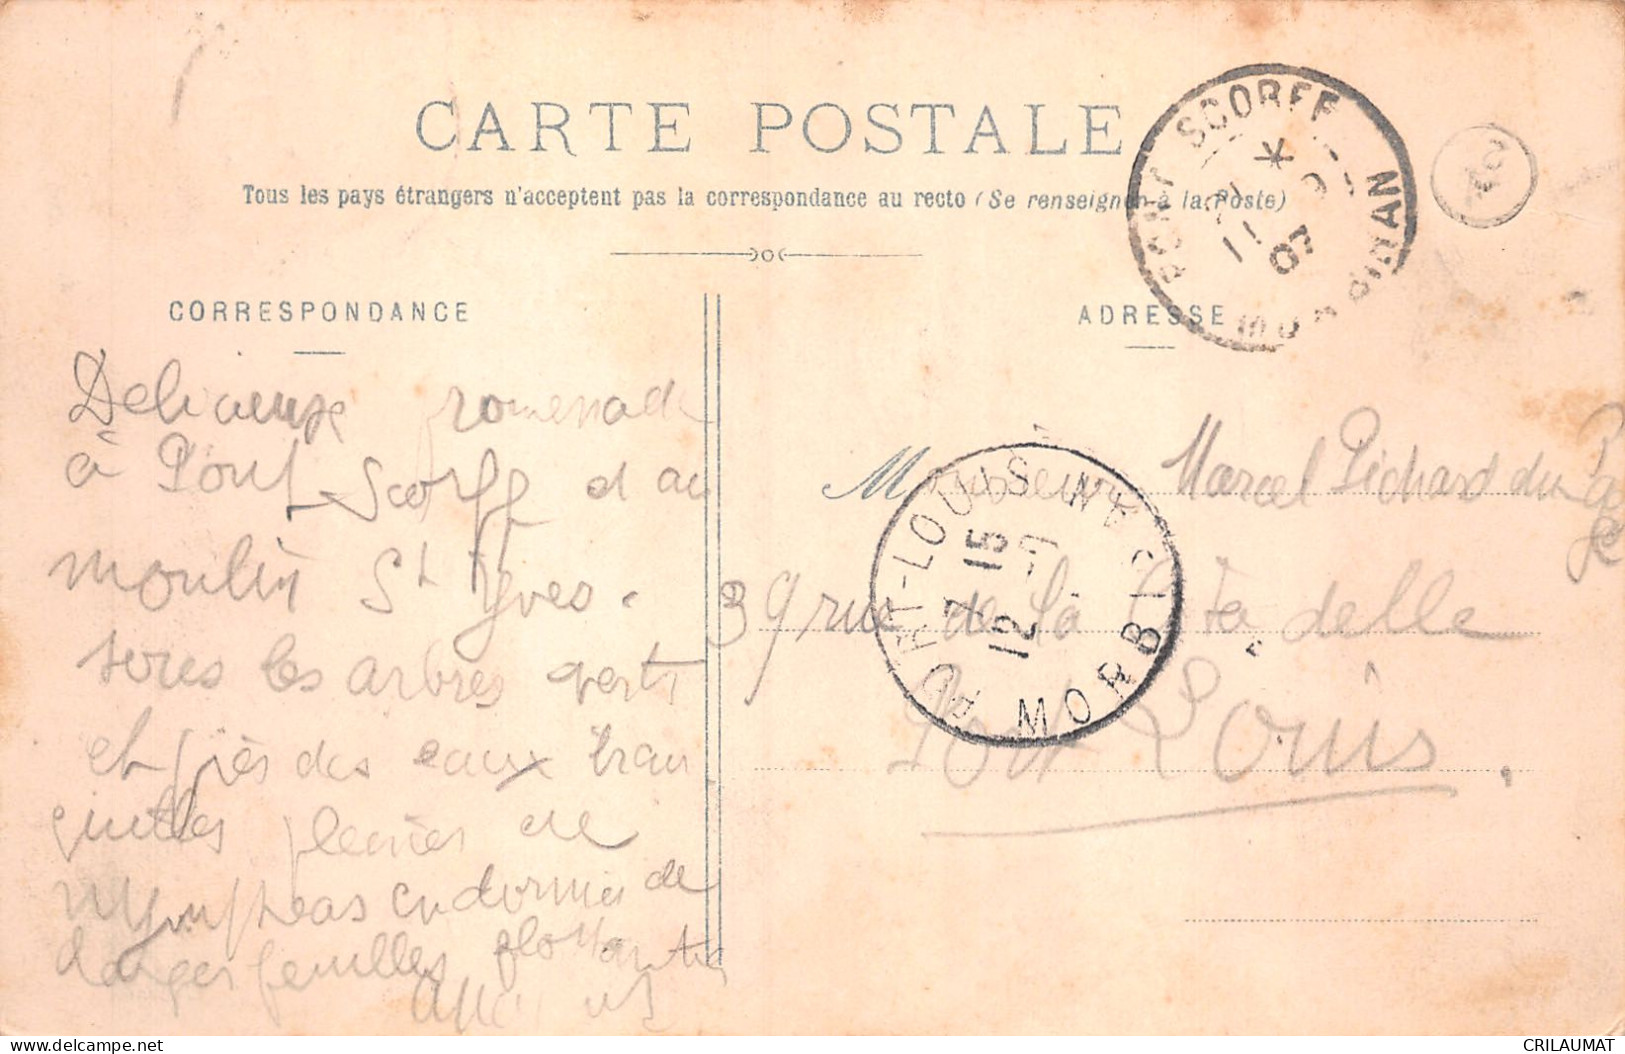 CARTE POSTALE
Tous les pays étrangers n'acceptent pas la correspondance au recto (Se renseigner à la Poste)
PONT SCORFF
*
11
07
MORBIHAN
CORRESPONDANCE
ADRESSE
Delicieuse promenade
à Pont Scorff et au
moulin St Yves.
sous les arbres verts
et près des eaux tran
quilles pleines de
nympheas endormies de
larges feuilles flottantes
Monsieur Marcel Pichard du Page
39 rue de la Citadelle
Port Louis.
PORT-LOUIS
7 15
12 -9
07
MORBIHAN
CRILAUMAT